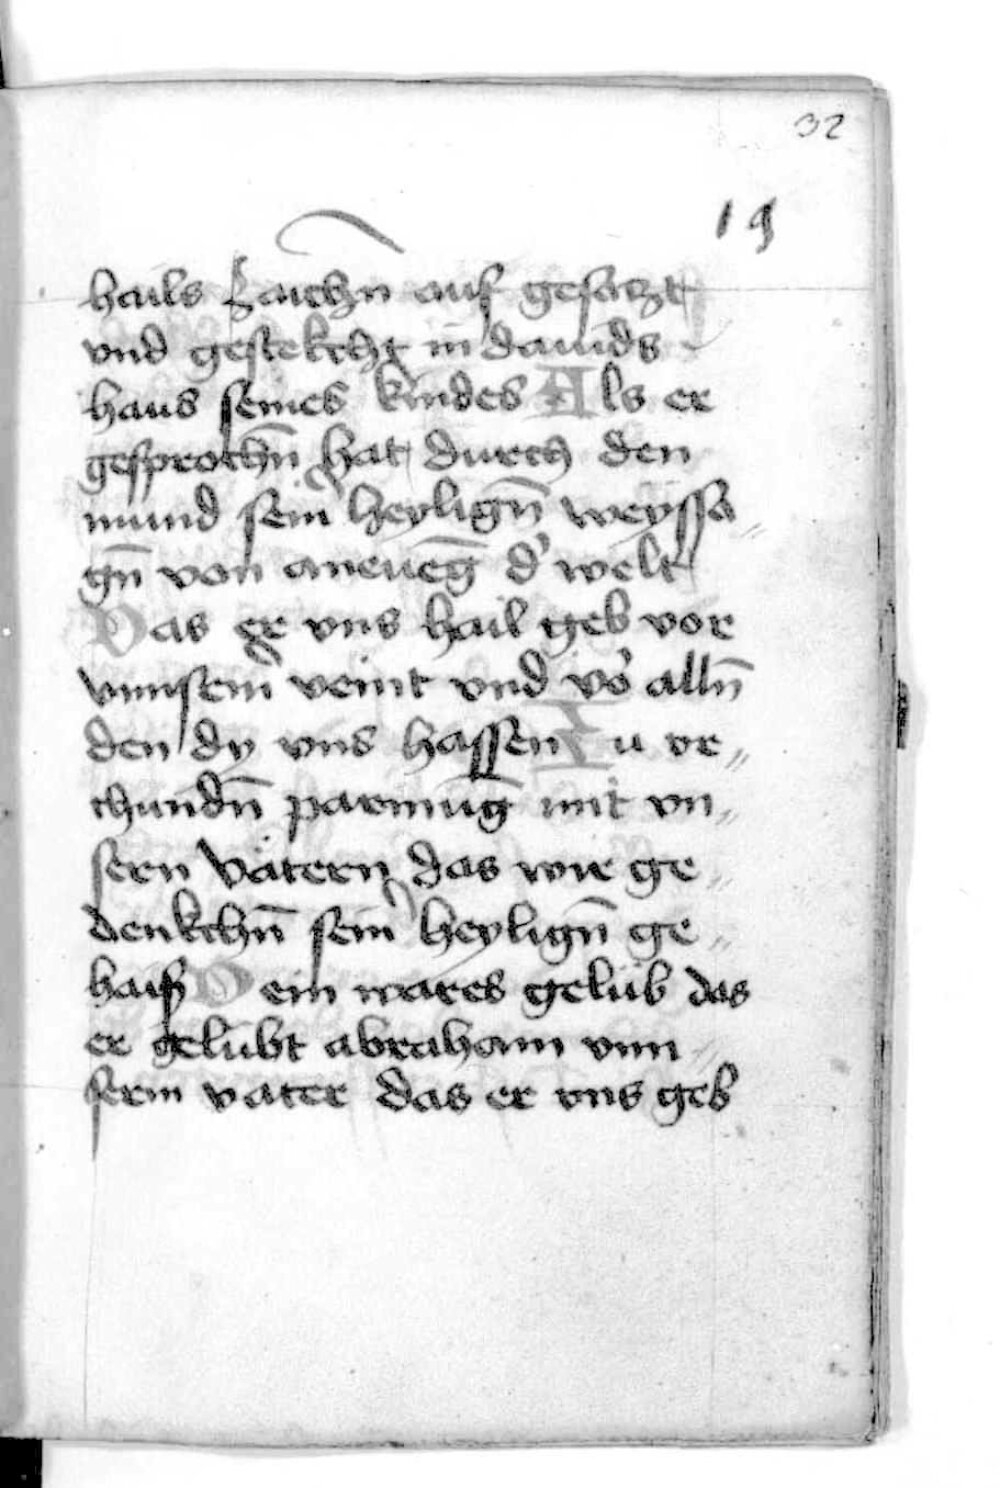 32
19
hails zaichn auf gesaczt
vnd gestekcht in dauids
haus seines kindes Als er
gesprochn̄ hat durch den
mund seinʾ heylign̄ weyssa„
gn̄ von aneueḡ dʾ welt
Das er vns hail geb vor
vnnsernʾ veint vnd voʾ alln̄
den dy vns hassen Zu ver„
chundn̄ parmūg mit vn„
sern vätern das wir ge„
denkchn̄ seinʾ heylign̄ ge„
haiß Dein wares gelüb das
er gelübt abraham vnn„
serm vater das er vns geb